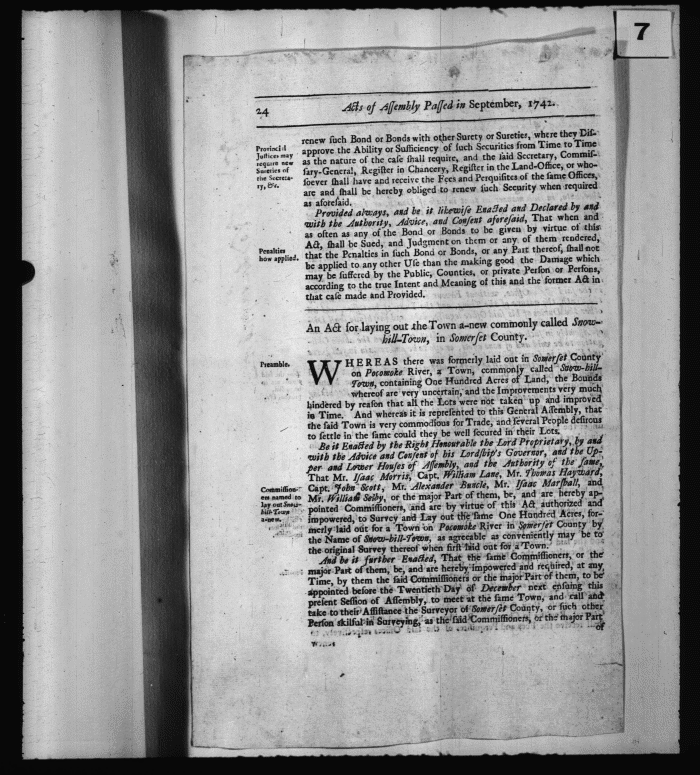 7
24 Acts of Aſſembly Paſſed in September, 1742.
Provincial
Juſtices may
require new
Sureties of
the Secreta-
ry, &c.
renew ſuch Bond or Bonds with other Surety or Sureties, where they Diſ-
approve the Ability or Sufficiency of ſuch Securities from Time to Time
as the nature of the caſe ſhall require, and the ſaid Secretary, Commiſ-
ſary-General, Regiſter in Chancery, Regiſter in the Land-Office, or who-
ſoever ſhall have and receive the Fees and Perquiſites of the ſame Offices,
are and ſhall be hereby obliged to renew ſuch Security when required
as aforeſaid.
Provided always, and be it likewiſe Enacted and Declared by and
with the Authority, Advice, and Conſent aforeſaid, That when and
as often as any of the Bond or Bonds to be given by virtue of this
Act, ſhall be Sued, and Judgment on them or any of them rendered,
Penalties
how applied.
that the Penalties in ſuch Bond or Bonds, or any Part thereof, ſhall not
be applied to any other Uſe than the making good the Damage which
may be ſuffered by the Public, Counties, or private Perſon or Perſons,
according to the true Intent and Meaning of this and the former Act in
that caſe made and Provided.
An Act for laying out the Town a-new commonly called Snow-
hill-Town, in Somerſet County.
Preamble.
WHEREAS there was formerly laid out in Somerſet County
on Pocomoke River, a Town, commonly called Snow-hill-
Town, containing One Hundred Acres of Land, the Bounds
whereof are very uncertain, and the Improvements very much
hindered by reaſon that all the Lots were not taken up and improved
in Time. And whereas it is repreſented to this General Aſſembly, that
the ſaid Town is very commodious for Trade, and ſeveral People deſirous
to ſettle in the ſame could they be well ſecured in their Lots.
Be it Enacted by the Right Honourable the Lord Proprietary, by and
with the Advice and Conſent of his Lordſhip's Governor, and the Up-
per and Lower Houſes of Aſſembly, and the Authority of the ſame,
That Mr. Iſaac Morris, Capt. William Lane, Mr. Thomas Hayward,
Capt. John Scott, Mr. Alexander Buncle, Mr. Iſaac Marſhall, and
Commiſſion-
ers named to
lay out Snow-
hill-Town
a-new.
Mr. William Selby, or the major Part of them, be, and are hereby ap-
pointed Commiſſioners, and are by virtue of this Act authorized and
impowered, to Survey and Lay out the ſame One Hundred Acres, for-
merly laid out for a Town on Pocomoke River in Somerſet County by
the Name of Snow-hill-Town, as agreeable as conveniently may be to
the original Survey thereof when firſt laid out for a Town.
And be it further Enacted, That the ſame Commiſſioners, or the
major Part of them, be, and are hereby impowered and required, at any
Time, by them the ſaid Commiſſioners or the major Part of them, to be
appointed before the Twentieth Day of December next enſuing this
preſent Seſſion of Aſſembly, to meet at the ſame Town, and call and
take to their Aſſiſtance the Surveyor of Somerſet County, or ſuch other
Perſon skilful in Surveying, as the ſaid Commiſſioners, or the major Part
of